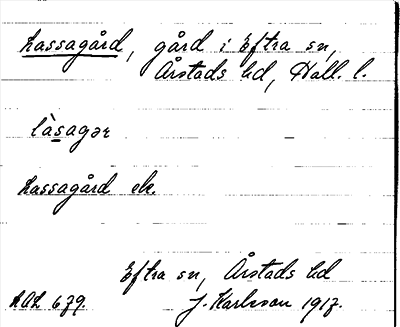 Lassagård, gård i Eftra sn,
Årstads hd, Hall. l.
làsagər
Lassagård ek.
Eftra sn, Årstads hd
AOL 679. J. Karlsson 1917.